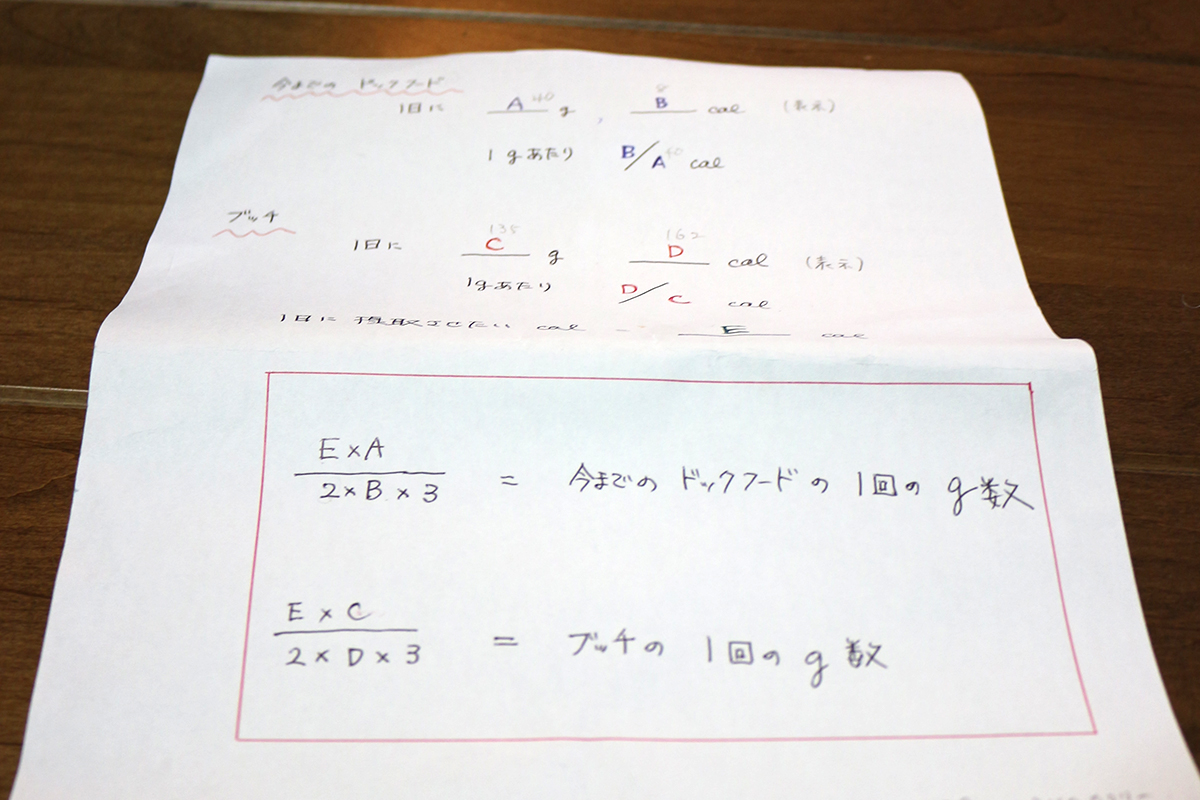 今までの ドックフード
1日に A 40 g , B cal (表示)
1gあたり B/A 40 cal
ブッチ
1日に C 135 g D 162 cal (表示)
1gあたり D/C cal
1日に 摂取させたい cal … E cal
E×A / 2×B×3 = 今までの ドックフードの 1回の g数
E×C / 2×D×3 = ブッチの 1回の g数